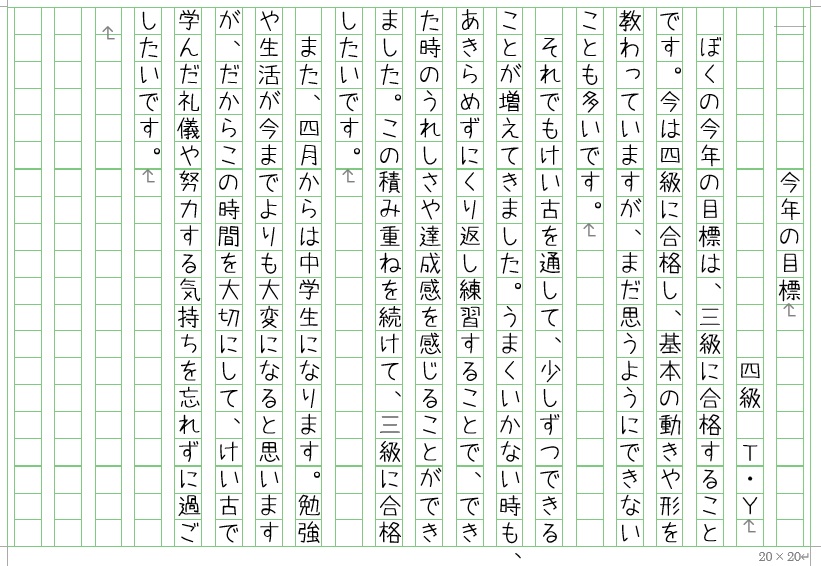 今年の目標
四級　Ｔ・Ｙ
ぼくの今年の目標は、三級に合格すること
です。今は四級に合格し、基本の動きや形を
教わっていますが、まだ思うようにできない
ことも多いです。
それでもけい古を通して、少しずつできる
ことが増えてきました。うまくいかない時も、
あきらめずにくり返し練習することで、でき
た時のうれしさや達成感を感じることができ
ました。この積み重ねを続けて、三級に合格
したいです。
また、四月からは中学生になります。勉強
や生活が今までよりも大変になると思います
が、だからこの時間を大切にして、けい古で
学んだ礼儀や努力する気持ちを忘れずに過ご
したいです。
20×20